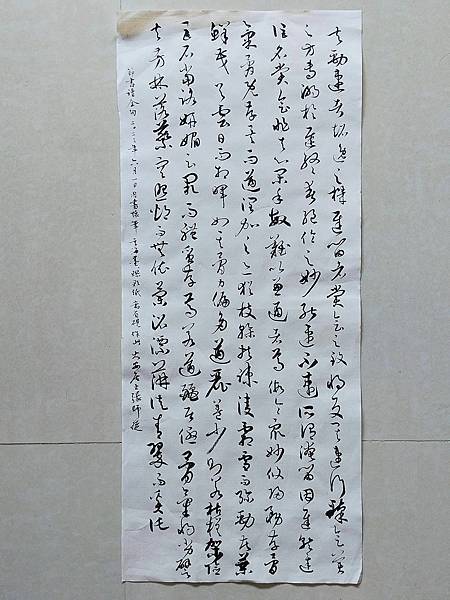 夫勁速者超逸之機遲留者賞會之致將反其速行臻會美
之方專溺於遲終爽絕倫之妙能速不速所謂淹留因遲就遲
詎名賞會非夫心閑手敏難以兼通者焉假令眾妙攸歸務存骨
氣骨既存矣而遒潤加之亦猶枝幹扶疏凌霜雪而彌勁花葉
鮮茂與雲日而相暉如其骨力偏多遒麗蓋少則若枯槎架險
巨石當路妍媚云闕而體質存焉若遒麗居優骨氣將劣譬
夫芳林落蕊空照灼而無依蘭沼漂萍徒青翠而奚託
書譜 六月一日